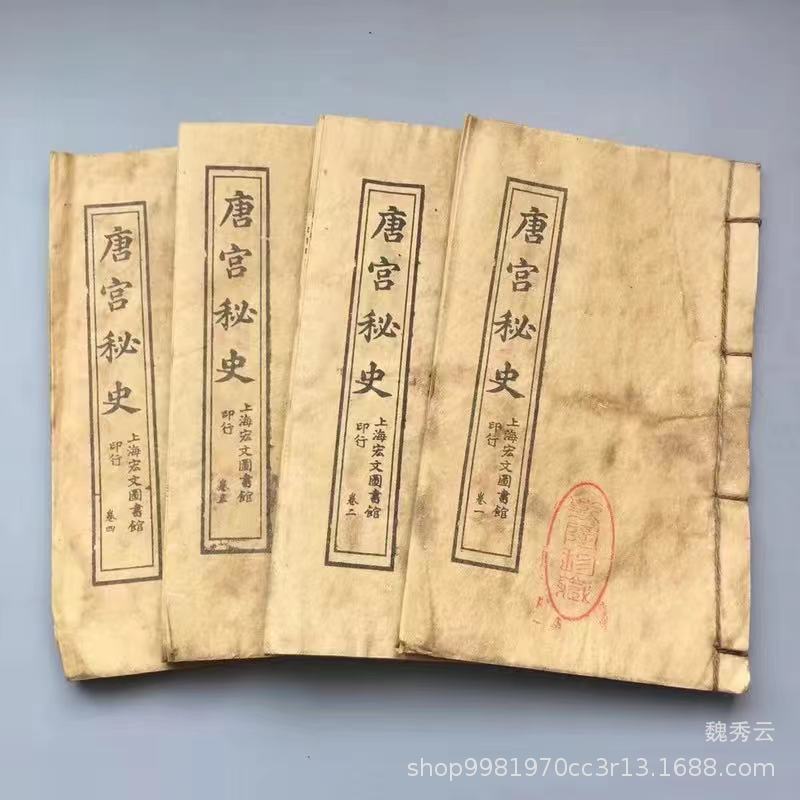 唐宫秘史
上海宏文圖書館
印行
卷一
唐宫秘史
上海宏文圖書館
印行
卷二
唐宫秘史
上海宏文圖書館
印行
卷
唐宫秘史
上海宏文圖書館
印行
卷四
魏秀云
shop9981970cc3r13.1688.com